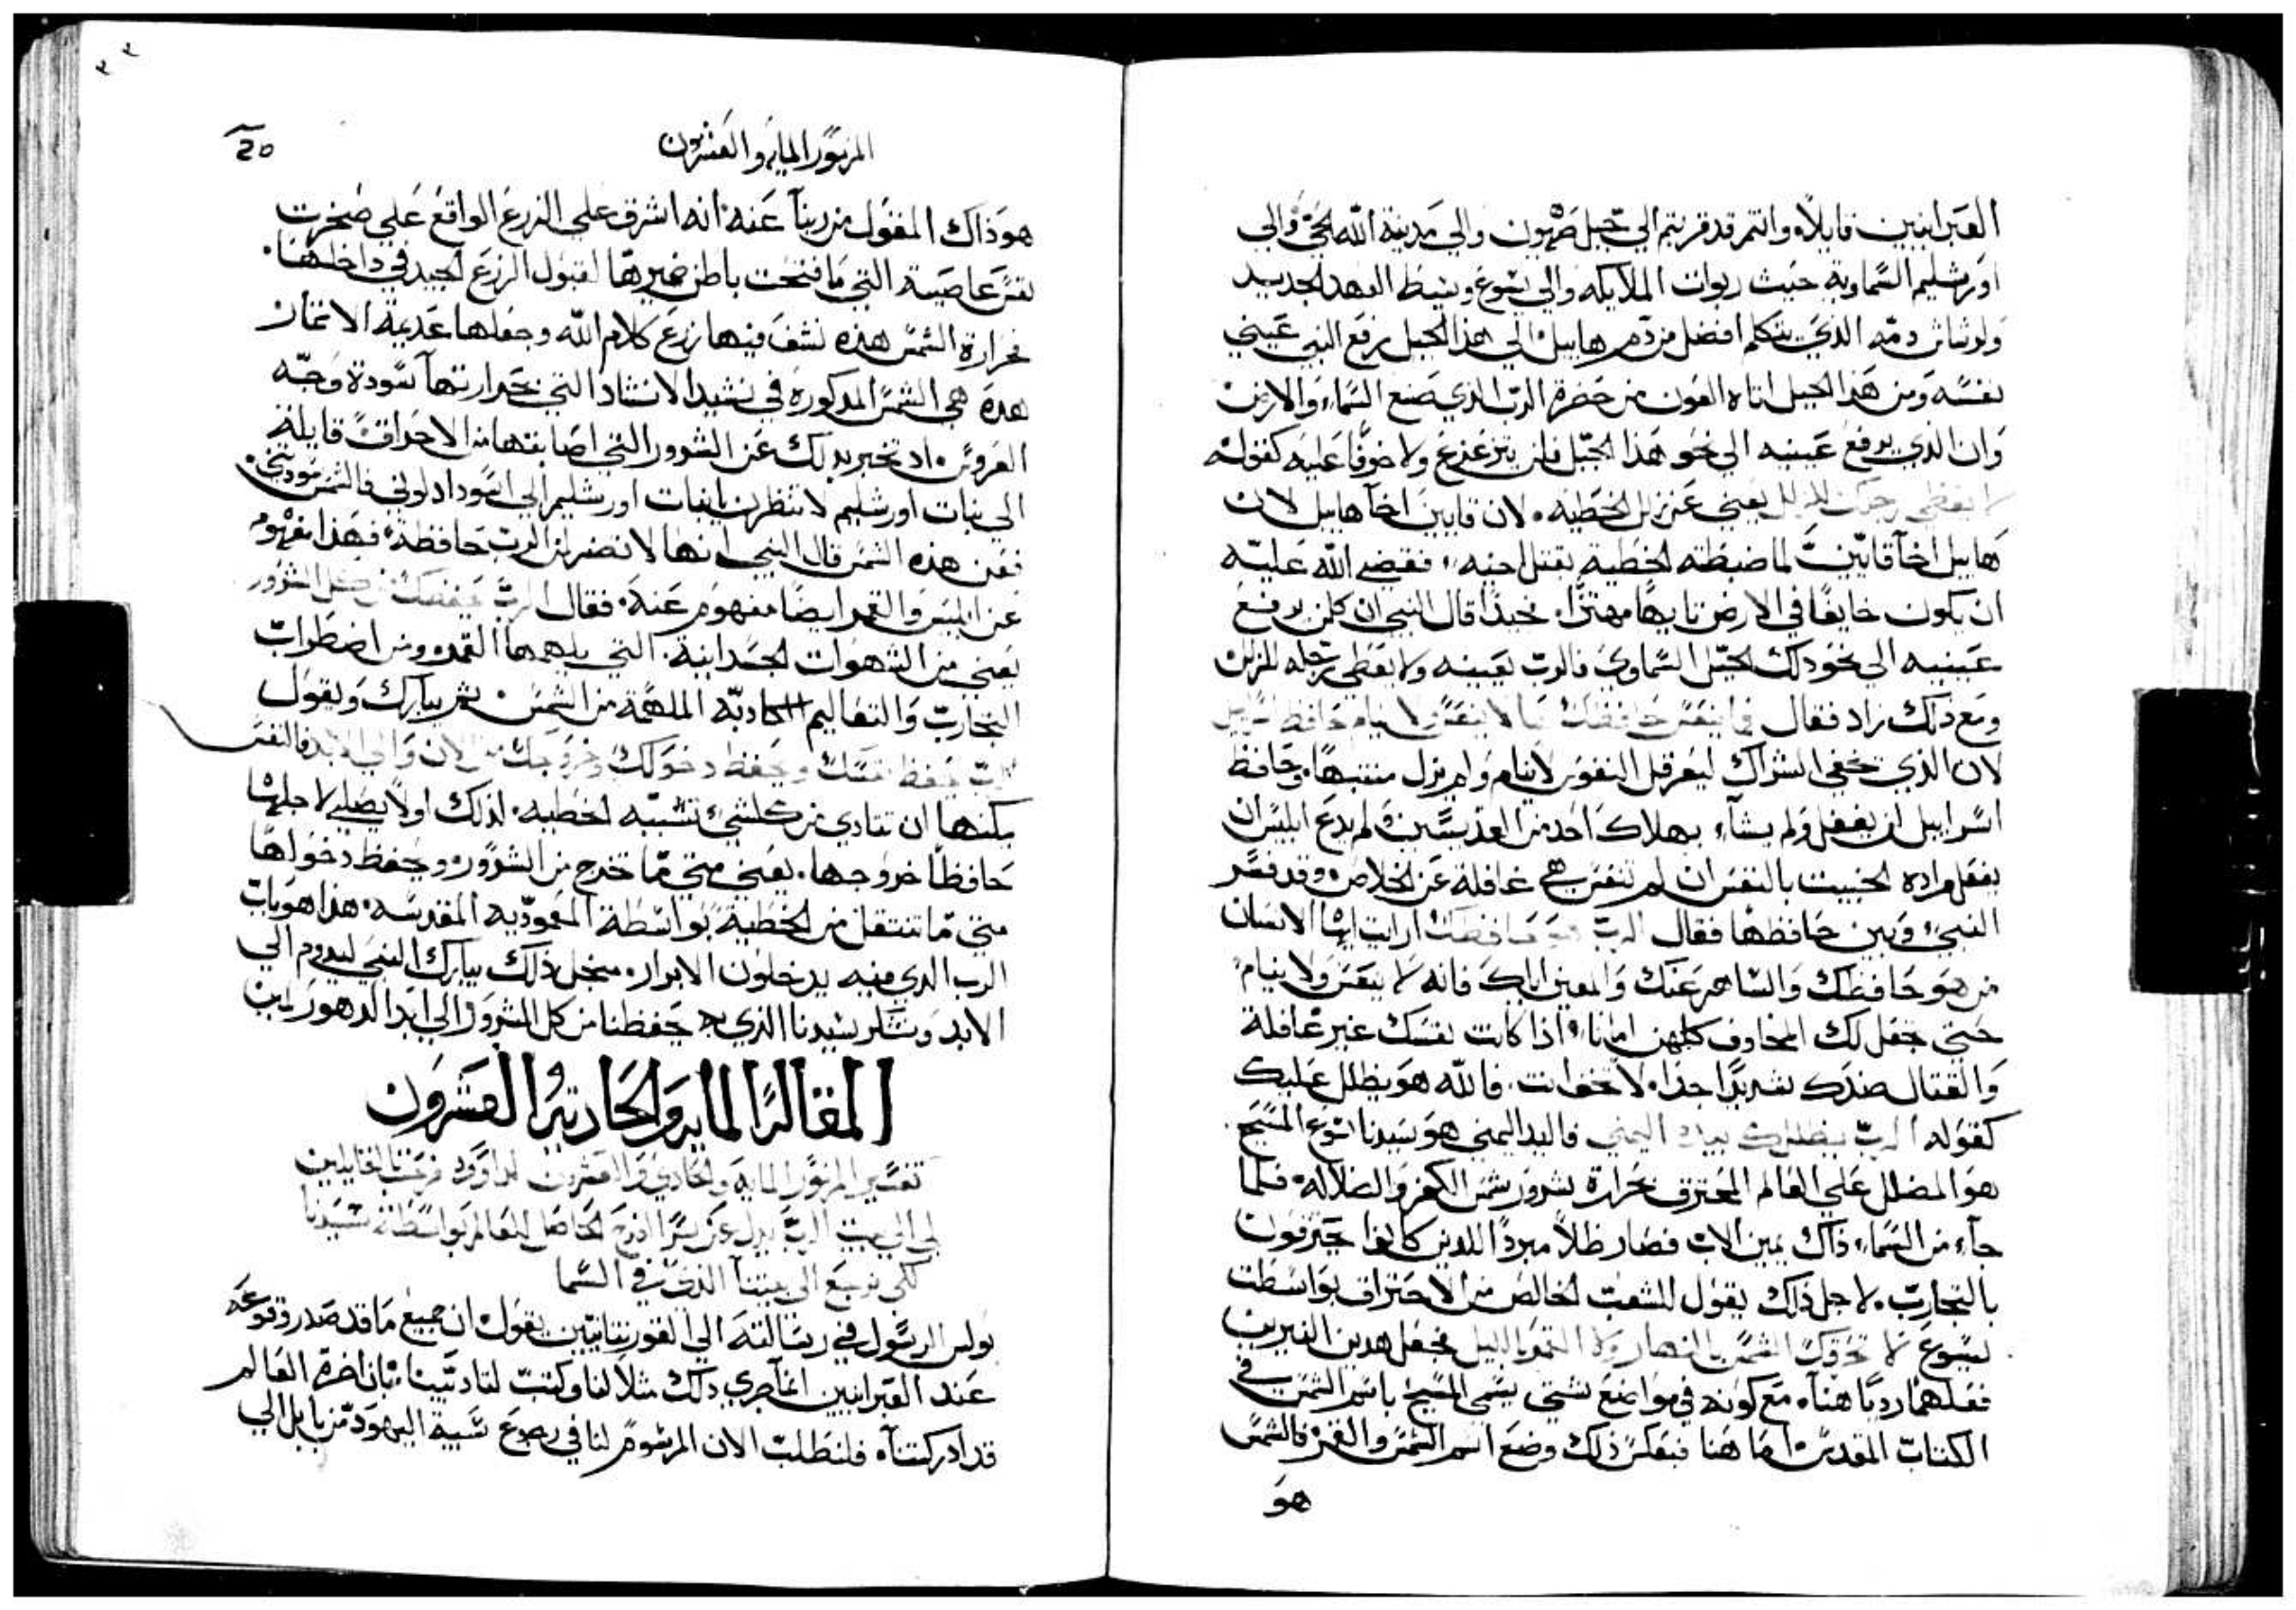 العبرانيين قايلاً وانتم قد قربتم الي جبل صهيون والي مدينة الله الحي والي
اورشليم السماوية حيث ربوات الملايكه والي يسوع وسيط العهد الجديد
ولرشاش دمه الذي يتكلم افضل من دم هابيل الي هذا الجبل يرفع النبي عيني
نفسه ومن هذا الجبل اتاه العون من حضرة الرب الذي صنع السماء والارض
وان الذي يرفع عينيه الي نحو هذا الجبل فلن يتزعزع ولا خوفًا عليه كقوله
لا يعطي رجلك للزلل يعني عن زلل الخطيه لان قايين اخا هابيل لان
هابيل اخا قايين لما ضبطته الخطية بقتل اخيه فقضي الله عليه
ان يكون خايفًا في الارض تايهًا مهتزًا فحيذا قال النبي ان كلمن يرفع
عينيه الي نحو دلك الجبل السماوي فالرب يعينه ولا يعطي رجله للزلل
ومع دلك زاد فقال فما ينعس حافظك ها لا ينعس ولا ينام حافظ اسراييل
لان الذي يخفي الشراك ليعرقل النفوس لا ينام ولم يزل منتبهًا وحافظ
اسراييل لن يغفل ولم يشآء بهلاك احد من القديسين لم يدع ابليس ان
يفعل مراده الخبيث بالنفس ان لم تنعس هي غافلة عن الخلاص وقد فسر
النبي وبين حافظها فقال الرب هو حافظك ارايت ايها الانسان
من هو حافظك والساهر عنك والمعين اياك فانه لا ينعس ولا ينام
حتي جعل لك المخاوف كلهن امانا اذا كانت نفسك غير غافلة
والقتال ضدك شديدًا جدا لا تخف انت فالله هو يظلل عليك
كقوله الرب يظللك بيده اليمني فاليد اليمني هو سيدنا يسوع المسيح
هو المضلل علي العالم المحترق بحرارة شرور شمس الكفر والضلاله فلما
جآء من السماء ذاك يمين الاب فصار ظلاً مبردًا للذين كانوا يحترقون
بالتجارب لاجل ذلك يقول للشعب الخالص من الاحتراق بواسطت
يسوع لا تحرقك الشمس بالنهار ولا القمر بالليل فجعل هدين النيرين
فعلهما رديًا هناه مع كونه في مواضع شتي يسمي المسيح باسم الشمس في
الكتاب المقدس اما هنا فبعكس ذلك وضع اسم الشمس والقمر فالشمس
هو
20
المزمور المايه والعشرون
هو ذاك المقول من ربنا عنه انه اشرق علي الزرع الواقع علي صخرت
نفس عاصية التي ما فتحت باطن ضميرها لقبول الزرع الجيد في داخلها
فحرارة الشمس هذه نشف فيها زرع كلام الله وجعلها عديمة الاتمار
هده هي الشمس المدكوره في نشيد الانشاد التي بحرارتها سودة وجه
العروس اد تخبر بدلك عن الشرور التي اصابتها من الاحراق قايلة
الي بنات اورشليم لا تنظرن يابنات اورشليم الي اسوداد لوني فالشمس سودتني
فعن هذه الشمس قال النبي انها لا تضر لمن الرب حافظه فهذا مفهوم
عن ابليس والقمر ايضًا مفهوم عنه فقال الرب يحفظك من كل الشرور
يعني من الشهوات الجسدانية التي يلهمها القمر ومن اضطراب
التجارب والتعاليم الكادبه الملهمة من الشمس ثم يبارك ويقول
الرب يحفظ نفسك ويحفظ دخولك وخروجك من الان والي الابد فالنفس
يمكنها ان تتادي من كلشي تسببه الخطيه لذلك اولاً يصلي لاجلها
حافظًا خروجها يعني متي ما تخرج من الشرور ويحفظ دخولها
متي ما تنتقل من الخطية بواسطة المعموديه المقدسه هذا هو باب
الرب الدي فيه يدخلون الابرار من اجل ذلك يبارك النبي ليدوم الي
الابد ونشكر سيدنا الذي يحفظنا من كل الشرور الي ابد الدهور امين
المقالة المايه والحادية والعشرون
تفسير المزمور المايه والحادي والعشرون لداوود فرحت بالقايلين
لي الي بيت الرب يدل عن سر الفرح الحاصل للعالم بواسطة سيدنا
لكي نرجع الي بيتنا الذي في السما
بولس الرسول في رسالته الي القورنتانيين يقول ان جميع ما قد صدر وقوعه
عند العبرانيين انما جري ذلك مثلاً لنا وكتب لتاديبنا بان اخرة العالم
قد ادركتناه فلنطلب الان المرسوم لنا في رجوع سبية اليهود من بابل الي